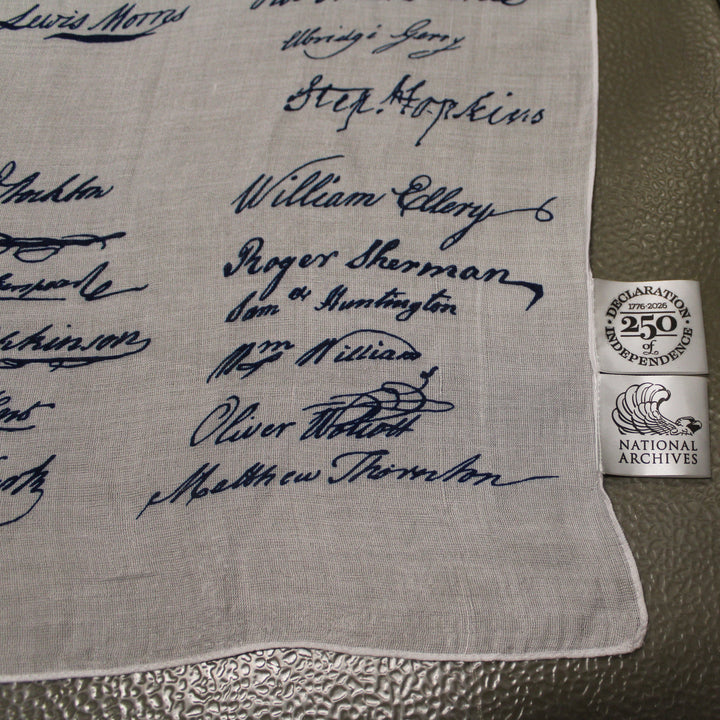 Lewis Morris
Elbridge Gerry
Step. Hopkins
William Ellery
Roger Sherman
Sam el Huntington
Wm Williams
Oliver Wolcott
Matthew Thornton
Stockton
DECLARATION
1776-2026
250
of
INDEPENDENCE
NATIONAL
ARCHIVES